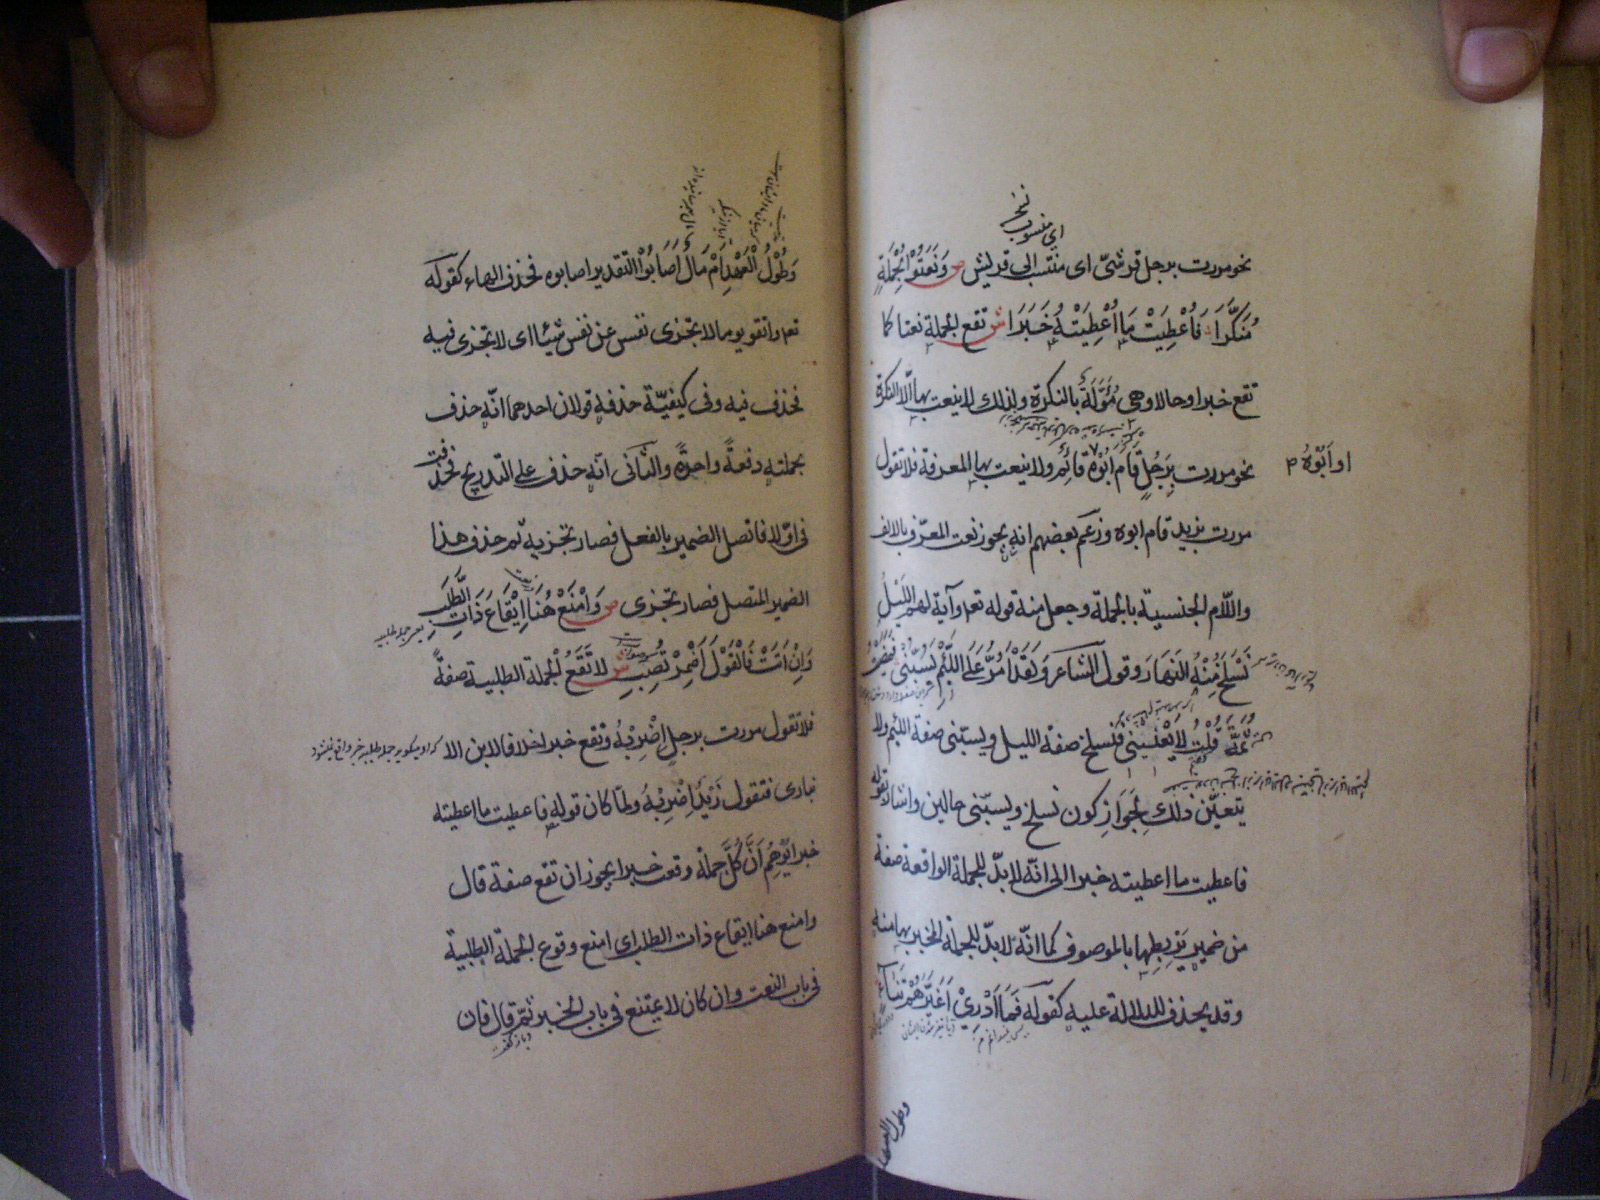 نحو مررت برجل قرشىّ اى منتسب الى قريش ص وَنَعَتُوْا بِجُمْلَةٍ
مُنَكَّرَاً فَاُعْطِيَتْ مَا اُعْطِيَتْهُ خَبَرَا ش تقع الجملة نعتا كما
تقع خبرا وحالا وهى مُؤَوَّلَةٌ بالنكرة ولذلك لا ينعت بها الّا النكرة
نحو مررت بِرَجُلٍ قَامَ اَبُوْهُ قَائِم ولا ينعت بها المعرفة فلا تقول
او اَبُوْهُ
مررت بزيد قام ابوه وزعم بعضهم انه يجوز نعت المعرّف بالالف
واللّام الجنسية بالجملة وجعل منه قوله تعم وآية لهم اللَيْلُ
نَسْلَخُ مِنْهُ النَهَارَ وقول الشاعر وَلَقَدْ اَمُرُّ عَلَى اللَّئِيْمِ يَسُبُّنِىْ فَمَضَيْتُ
ثُمَّةَ قُلْتُ لَا يَعْنِيْنِى فنسلخ صفة الليل ويسبّنى صفة اللئيم ولا
يتعيّن ذلك لِجَوَازِ كون نسلخ ويسبّنى حالين واشار بقوله
فاعطيت ما اعطيته خبرا الى انّه لا بدّ للجملة الواقعة صفة
من ضمير يَرْبِطِها بالموصوف كما انّه لا بدّ للجملة المخبر بها منه
وقد يحذف للدلالة عليه كقوله فَمَا اَدْرِىْ اَغَيَّرَهُمْ تَنَاءٍ
اى منسوب
وَطُوْلُ الْعَهْدِ اَمْ مَالٌ اَصَابُوْا التقدير اصابوه فحذف الهاء كقوله
تعم واتقو يوما لا تجزى نفس عن نفس شيئا اى لا تجزى فيه
فحذف فيه وفى كيفيّة حذفه قولان احدهما انّه حذف
بجملته دفعةً واحدةً والثانى انّه حذف على التدريج فحذفت
فى اوّلا فاتصل الضمير بالفعل فصار تجزيه ثم حذف هذا
الضمير المتصل فصار تجزى ص وَامْنَعْ هُنَا اِيْقَاعَ ذَاتِ الطَّلَبِ
وَاِنْ اَتَتْ فَالْقَوْلَ اَضْمِرْ تُصِبِ ش لا تَقَعُ الجملة الطلبية صفةً
فلا تقول مررت برجلٍ اِضْرِبْهُ وتقع خبرا خلافا لابن الا
نبارى فتقول زَيْدٌ اِضْرِبْهُ ولمّا كان قوله فاعطيت ما اعطيته
خبرا يُوْهِمُ اَنَّ كُلَّ جملة وقعت خبرا يجوز ان تقع صفة قال
وامنع هنا ايقاع ذات الطلب اى امنع وقوع الجملة الطلبية
فى باب النعت وان كان لا يمتنع فى باب الخبر ثمّ قال فان